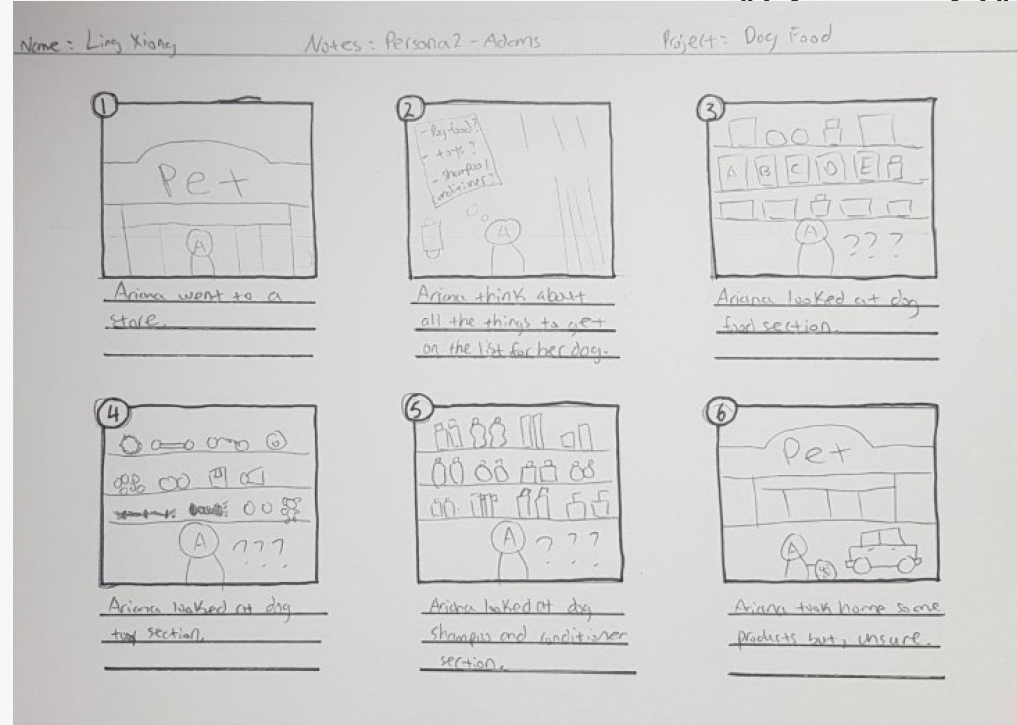 Name: Ling Xiong
Notes: Persona 2 - Adams
Project: Dog Food
1
Pet
A
Ariana went to a
store.
2
- Dog food?
- toys?
- shampoo/
conditioner?
A
Ariana think about
all the things to get
on the list for her dog.
3
A B C D E
A ???
Ariana looked at dog
food section.
4
A ???
Ariana looked at dog
toy section.
5
A ???
Ariana looked at dog
shampoo and conditioner
section.
6
Pet
A
Ariana took home some
products but, unsure.